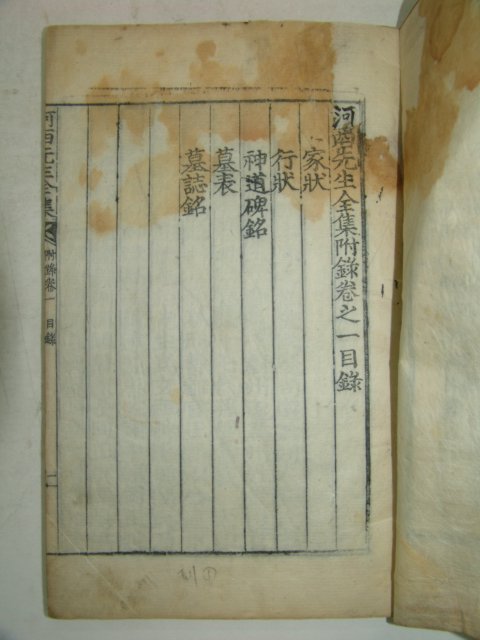 河西先生全集附錄卷之一目錄
家狀
行狀
神道碑銘
墓表
墓誌銘
河西先生全集 附錄卷一 目錄 一